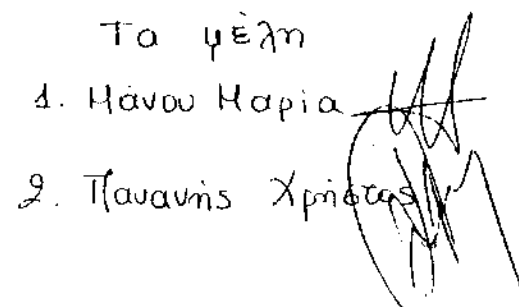 Τα μέλη
1. Μάνου Μαρία
2. Παυανής Χρήστος